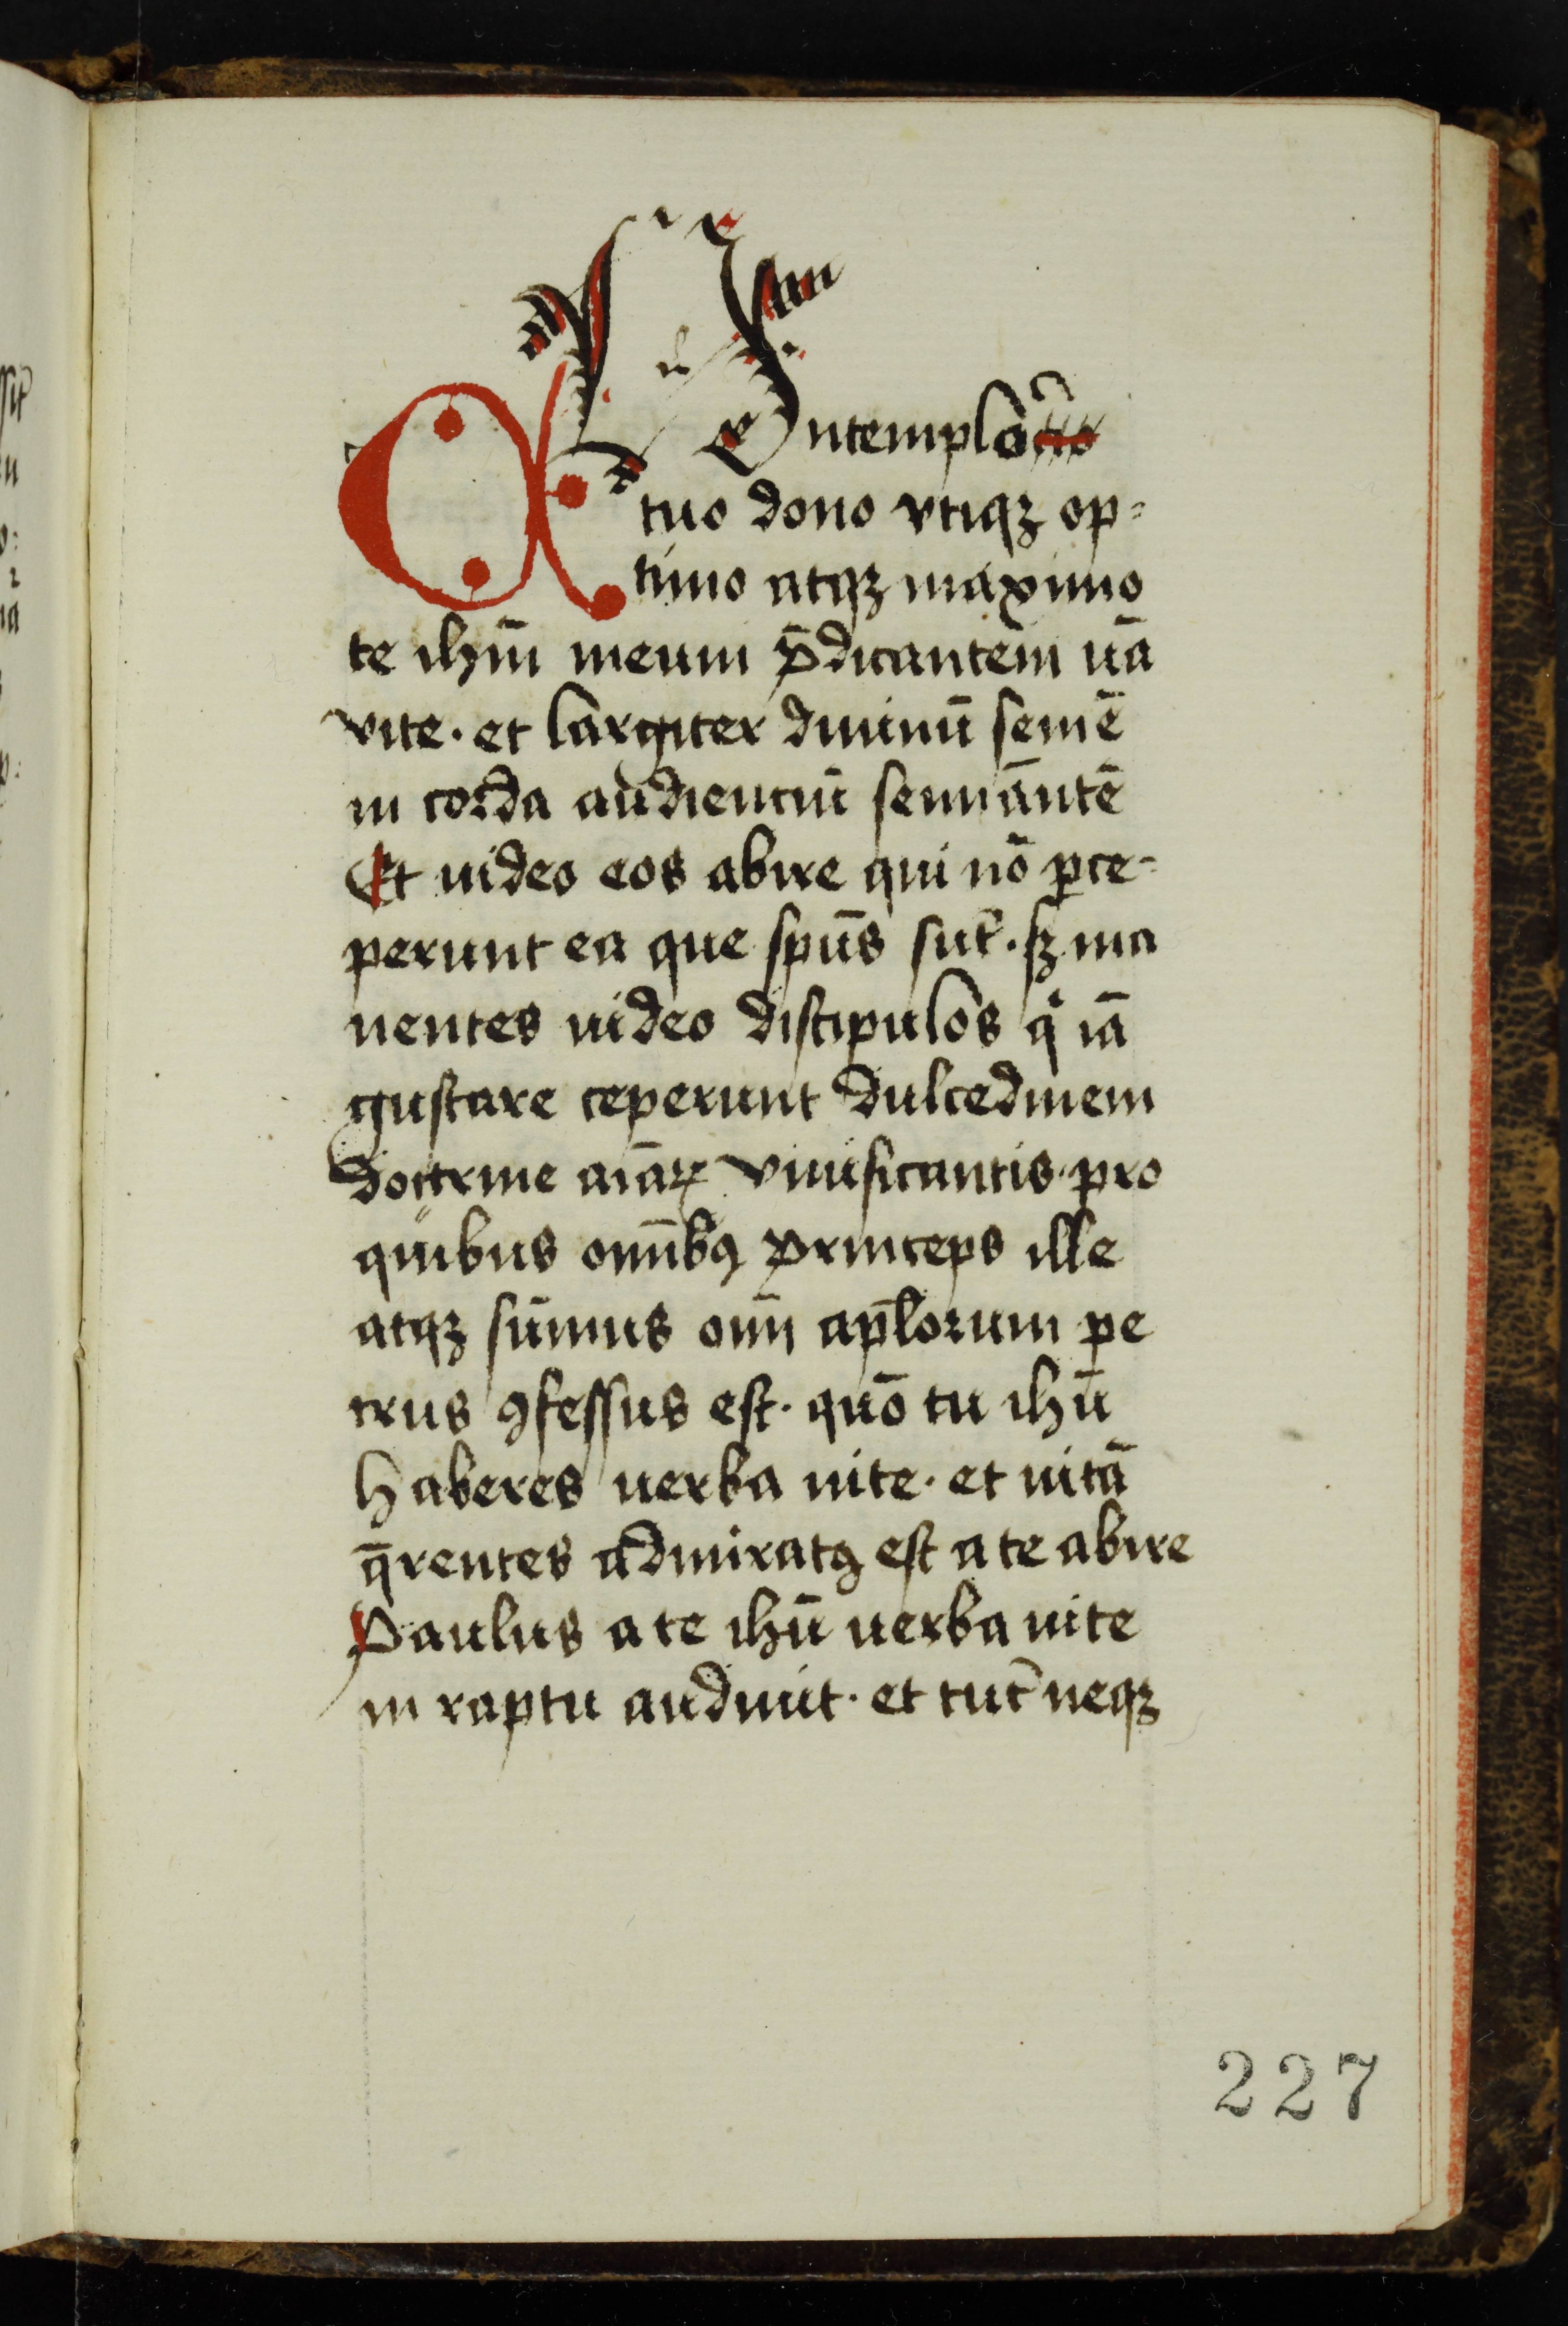 Contemplor̄
tuo dono vtiqꝫ op-
timo atqꝫ maximo
te ihm̄ meum p̄dicantem uā
vite. et largiter diuinū semē
in corda audientiū seminantē
Et uideo eos abire qui nō ꝑce-
perunt ea que sp̄us sūt. sꝫ ma
nentes uideo discipulos qͥ iā
gustare ceperunt dulcedinem
doctrine aīaꝝ viuificantis. pro
quibus omībꝯ princeps ille
atqꝫ sūmus oīm apl̄orum pe
trus ꝯfessus est. quō tu ihū
haberes uerba uite. et uitā
q̄rentes admiratꝯ est a te abire
Paulus a te ihū uerba uite
in raptu audiuit. et tūc neqꝫ
227